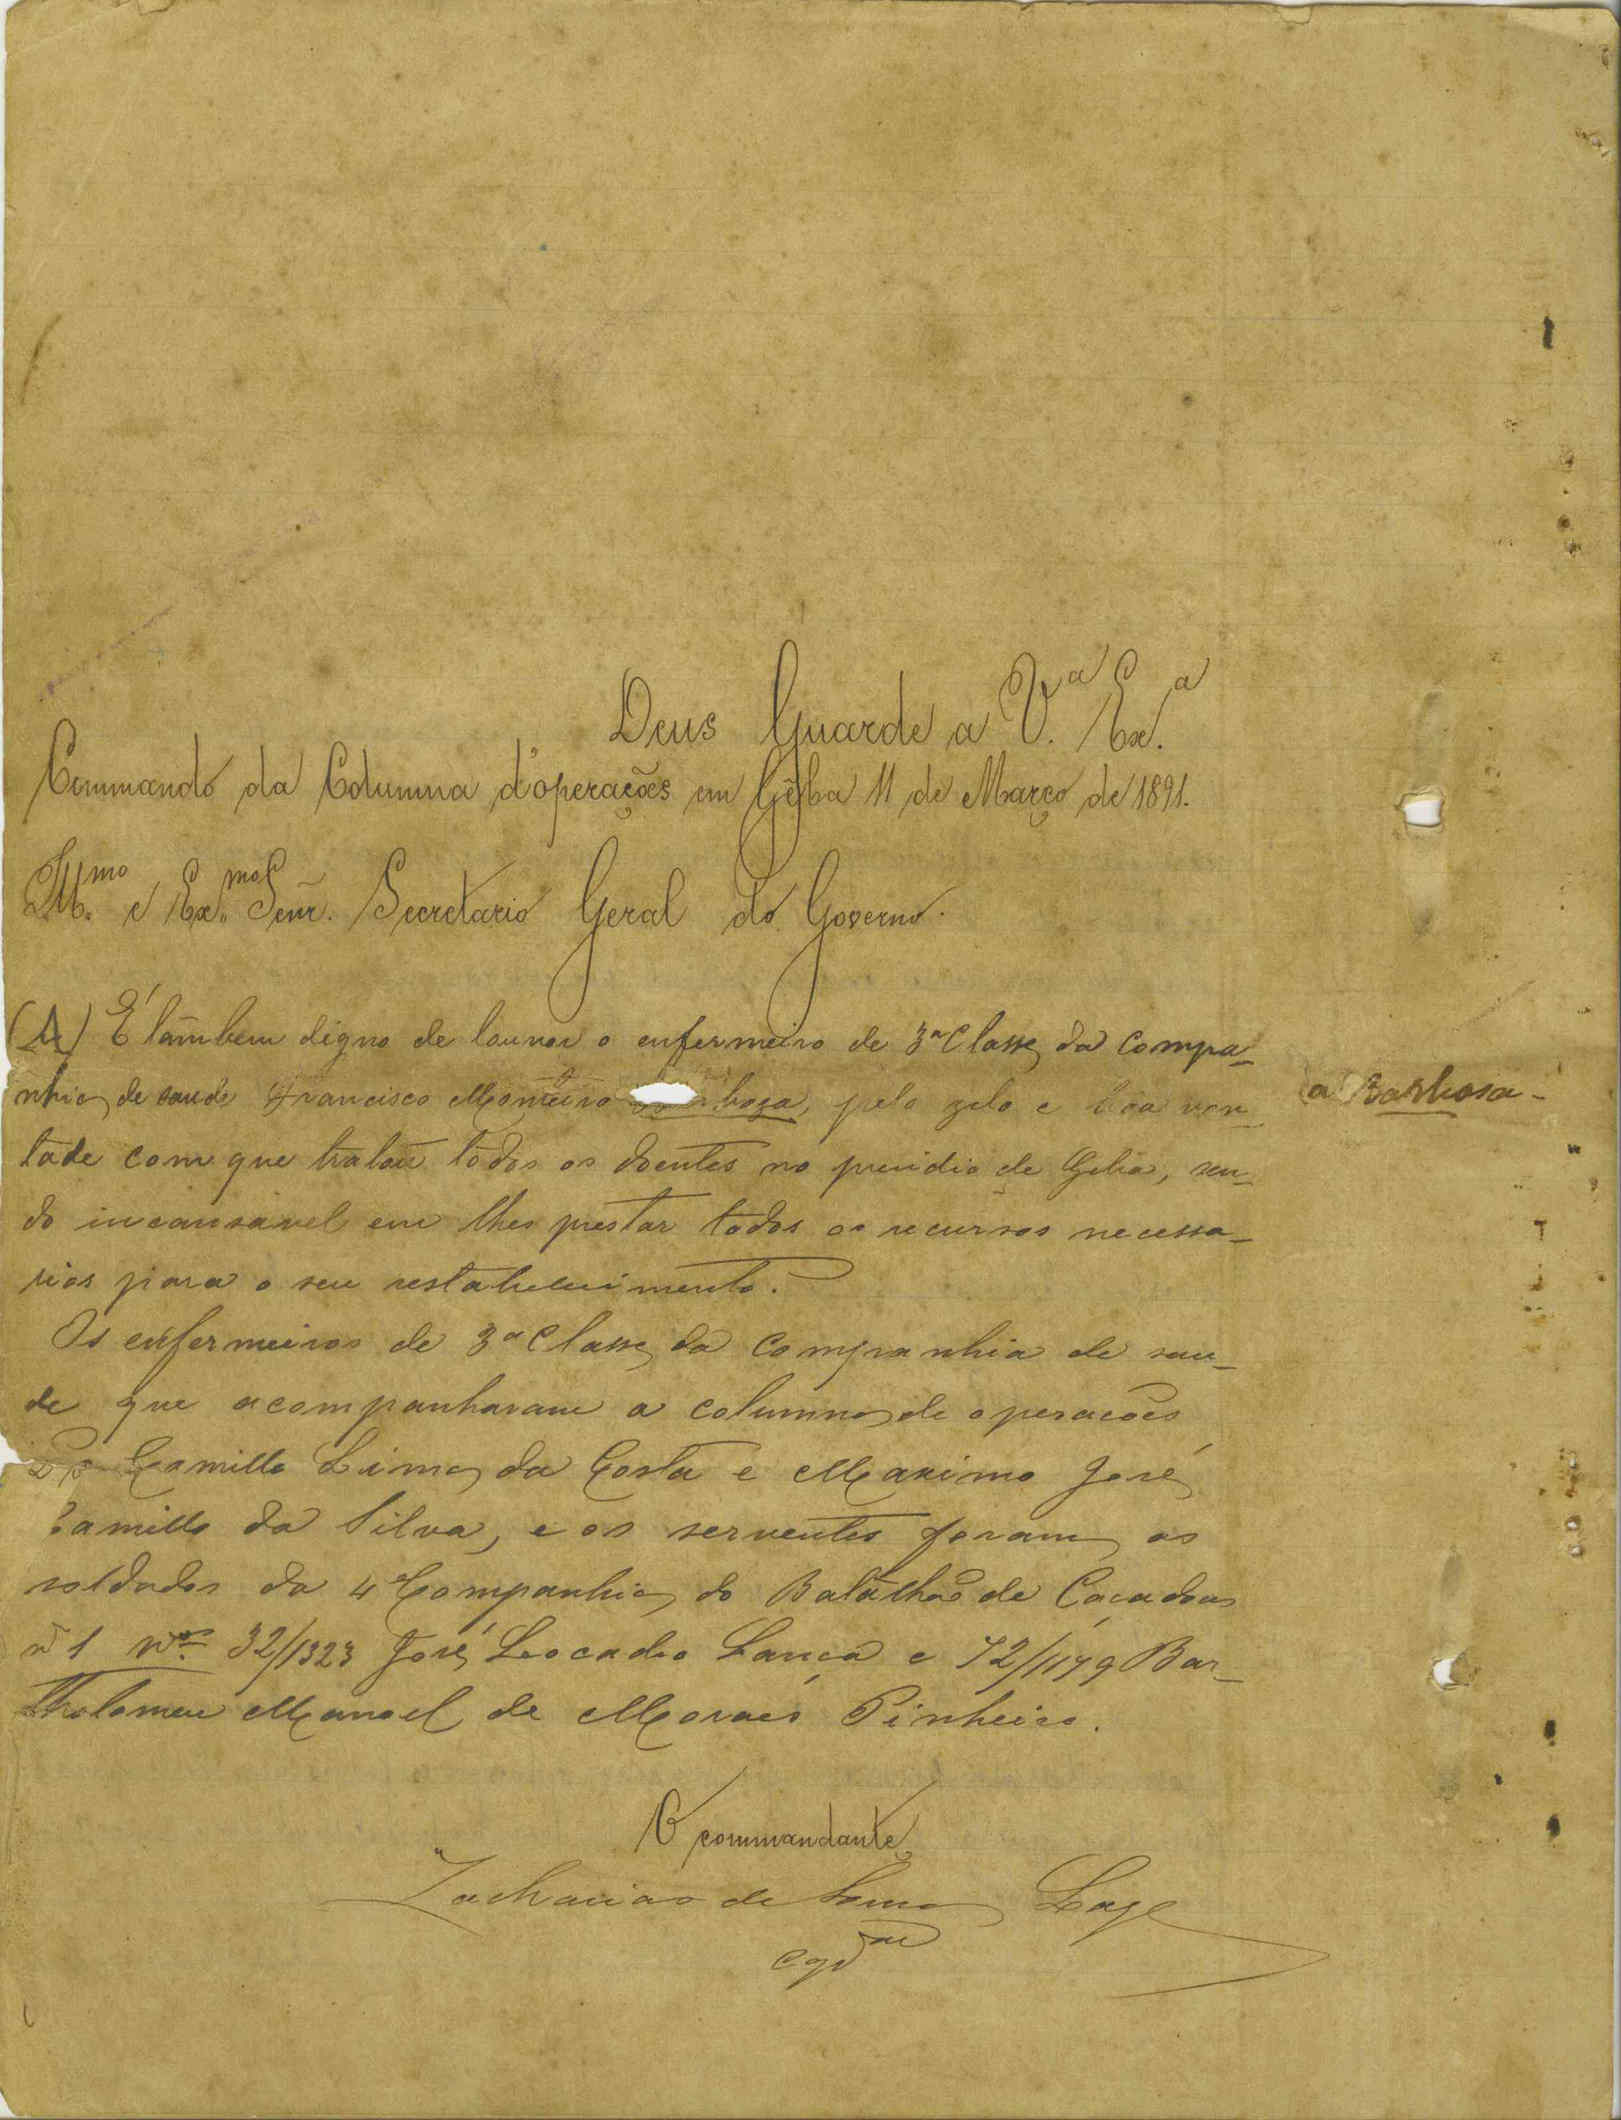 Deus Guarde a V.ª Ex.ª
Commando da Columna d'operações em Gêba 11 de Março de 1891.
Ill.mo e Ex.mo Senr. Secretario Geral do Governo.
(A) É tambem digno de louvor o enfermeiro de 3ª Classe da Compa-
nhia de saude Francisco Monteiro boza, pelo zelo e boa von-
a Barbosa-
tade com que tratou todos os doentes no presidio de Geba, sen-
do incansavel em lhes prestar todos os recursos necessa-
rios para o seu restabelecimento.
Os enfermeiros de 3ª Classe da Companhia de sau-
de que acompanharam a columna de operações
Camillo Lima da Costa e Maximo José
Camillo da Silva, e os serventes foram os
soldados da 4ª Companhia do Batalhão de Caçadores
nº 1 Nos. 32/1323 José Leocadio Lança e 72/1179 Bar-
tholomeu Manoel de Moraes Pinheiro.
O commandante
Zacharias de Souza Lage
Cap.am